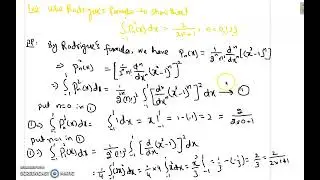 Use Rodrigue's formula to show that
∫₋₁¹ Pₙ²(x) dx = 2/(2n+1), n = 0,1,2
By Rodrigue's formula, we have Pₙ(x) = 1/(2ⁿ n!) dⁿ/dxⁿ (x²-1)ⁿ
⇒ Pₙ²(x) = [1/(2ⁿ n!) dⁿ/dxⁿ (x²-1)ⁿ]²
⇒ ∫₋₁¹ Pₙ²(x) dx = 1/(2²ⁿ (n!)²) ∫₋₁¹ [dⁿ/dxⁿ (x²-1)ⁿ]² dx → ①
put n=0 in ①
① ⇒ ∫₋₁¹ P₀²(x) dx = ∫₋₁¹ 1 dx = x |₋₁¹ = 1-(-1) = 2 = 2/(2×0+1)
put n=1 in ①
① ⇒ ∫₋₁¹ P₁²(x) dx = 1/(2²(1!)²) ∫₋₁¹ [d/dx (x²-1)]² dx
= 1/4 ∫₋₁¹ (2x)² dx = 1/4 × 4 ∫₋₁¹ x² dx = x³/3 |₋₁¹ = 1/3 - (-1/3) = 2/3 = 2/(2×1+1)